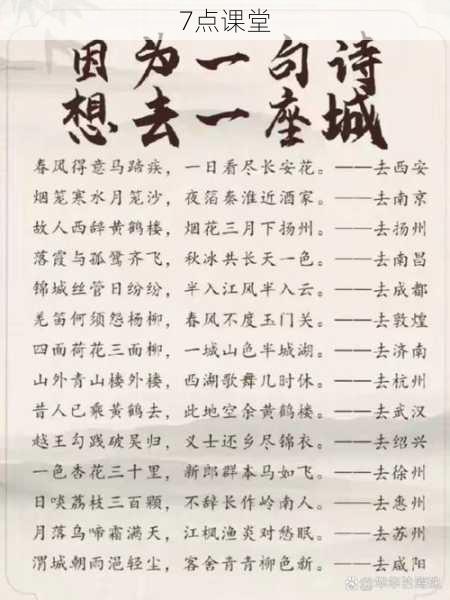 7点课堂
因为一句诗
想去一座城
春风得意马蹄疾，一日看尽长安花。——去西安
烟笼寒水月笼沙，夜箔秦淮近酒家。——去南京
故人西辞黄鹤楼，烟花三月下扬州。——去扬州
落霞与孤鹜齐飞，秋冰共长天一色。——去南昌
锦城丝管日纷纷，半入江风半入云。——去成都
羌笛何须怨杨柳，春风不度玉门关。——去敦煌
四面荷花三面柳，一城山色半城湖。——去济南
山外青山楼外楼，西湖歌舞几时休。——去杭州
昔人已乘黄鹤去，此地空余黄鹤楼。——去武汉
越王勾践破吴归，义士还乡尽锦衣。——去绍兴
一色杏花三十里，新郎群本马如飞。——去徐州
日啖荔枝三百颗，不辞长作岭南人。——去惠州
月落乌啼霜满天，江枫渔炎对愁眠。——去苏州
渭城朝雨浥轻尘，客舍青青柳色新。——去咸阳